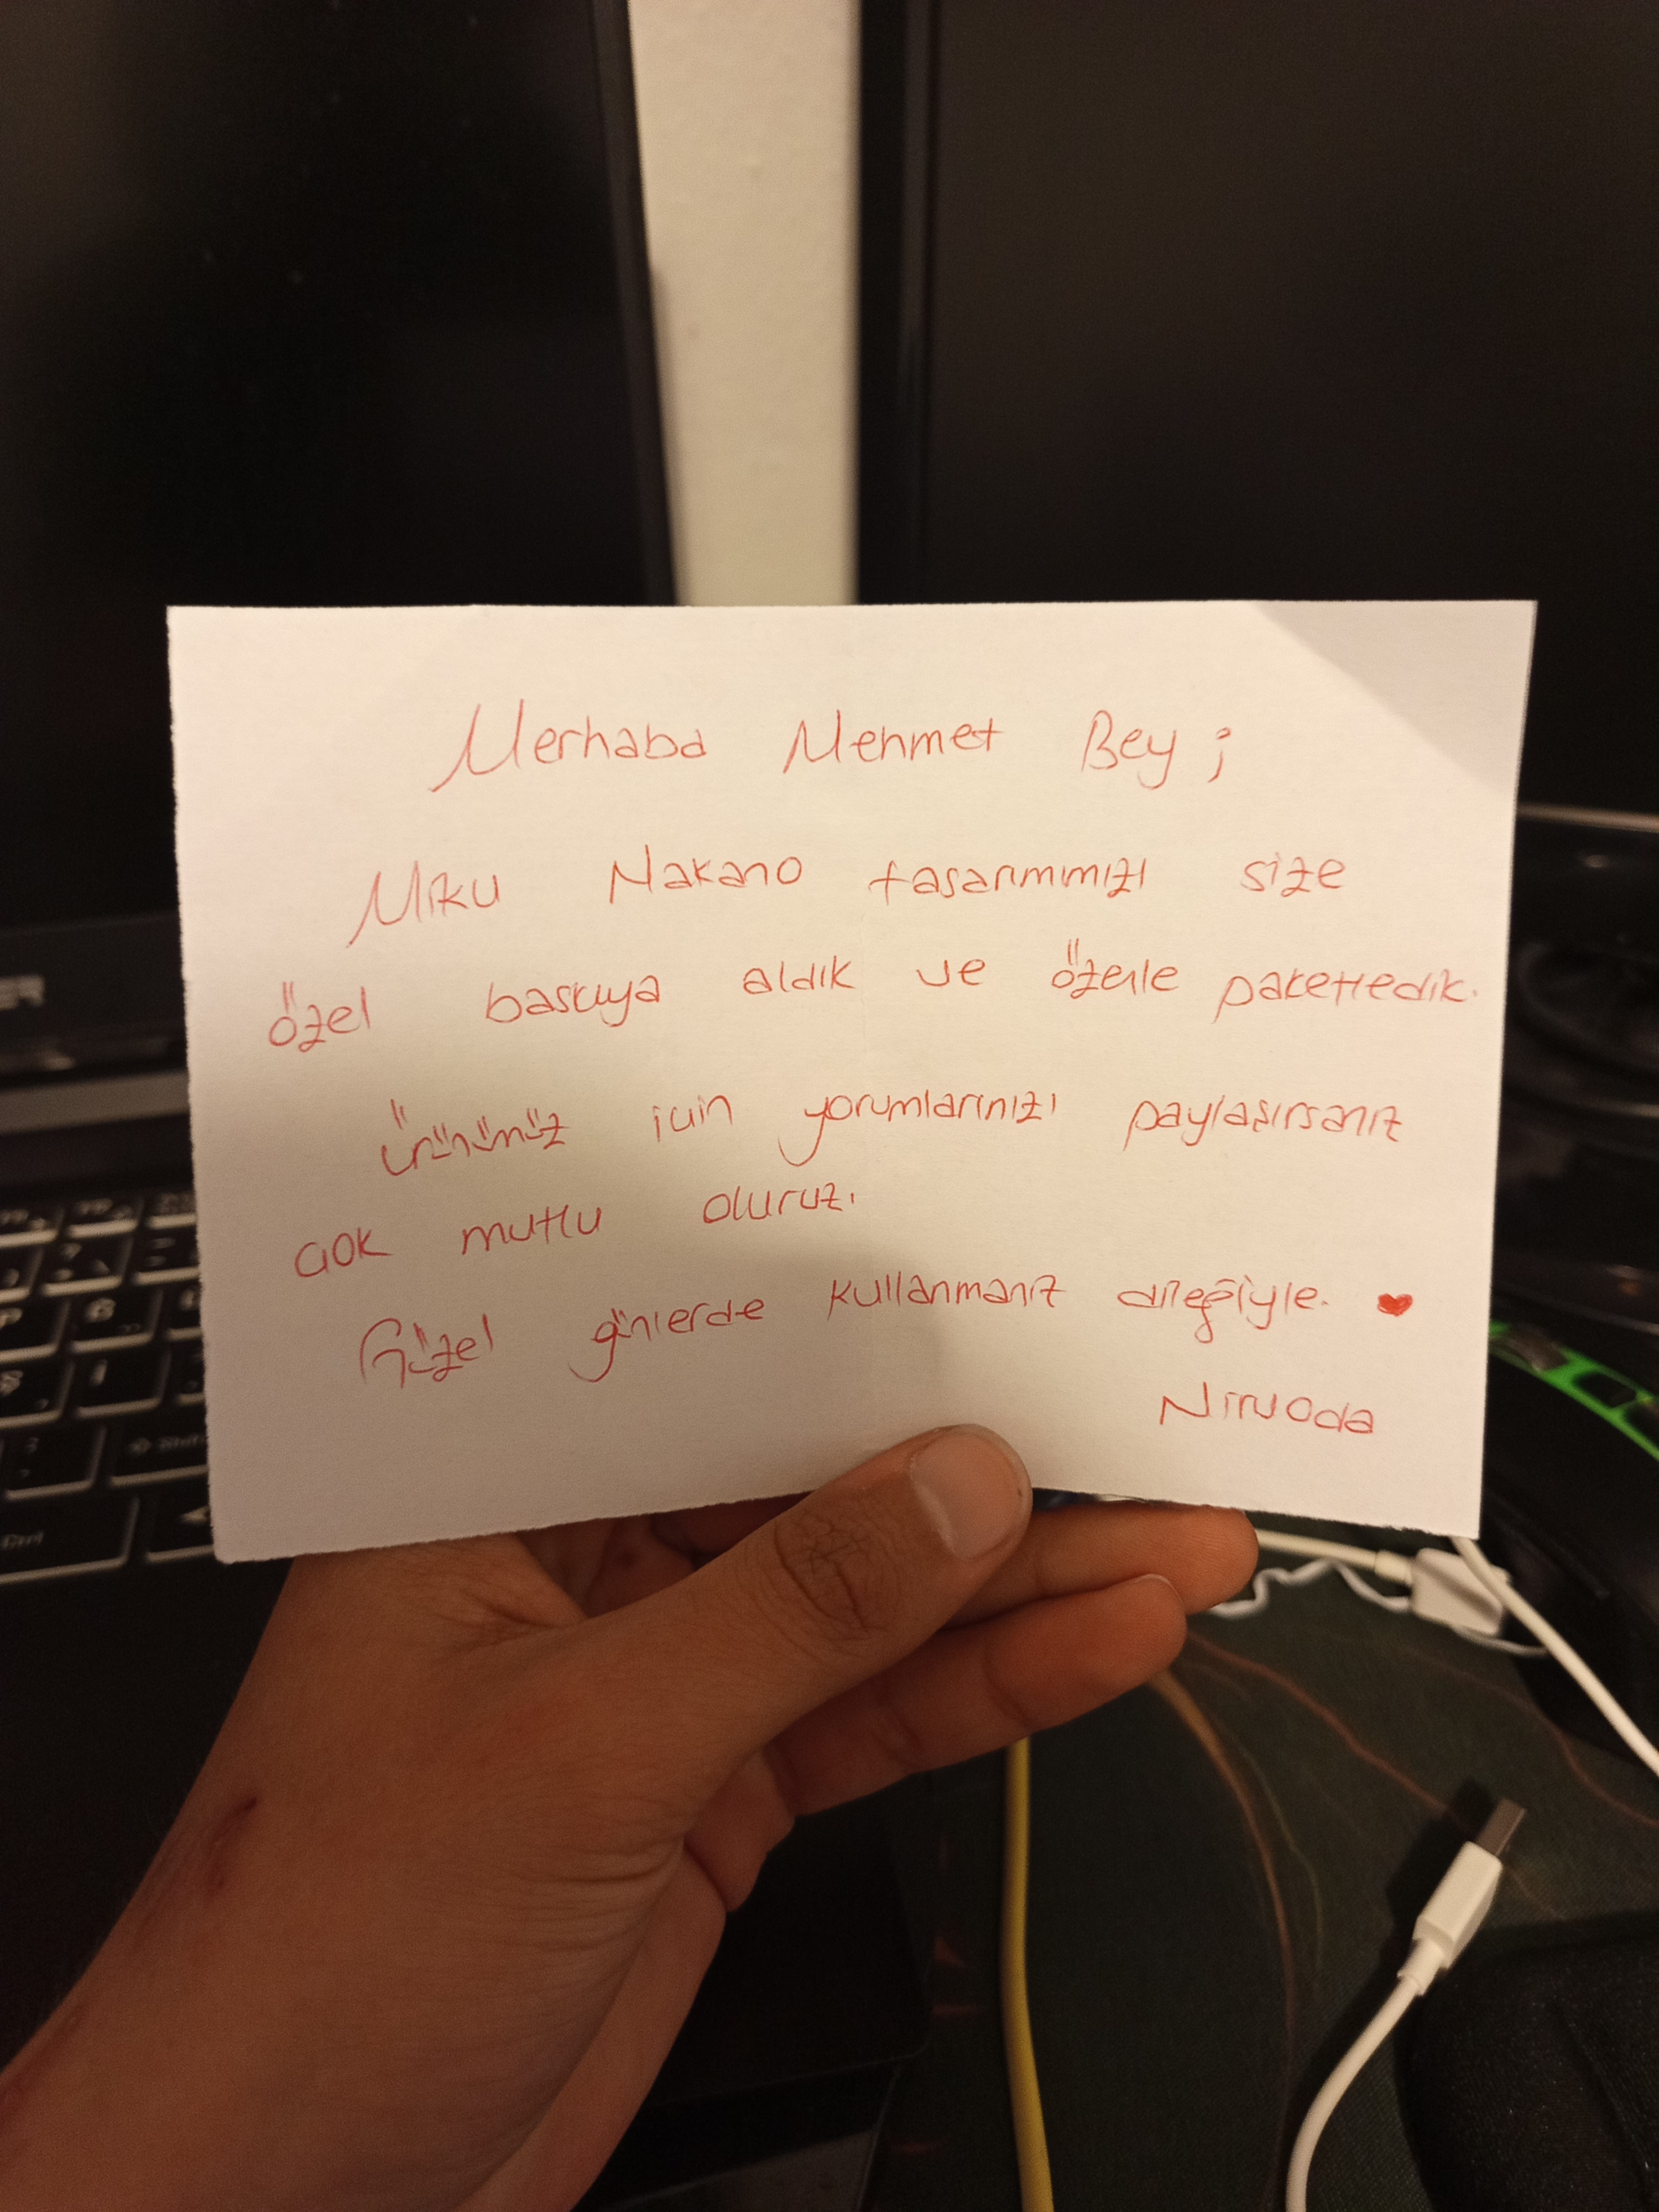 Merhaba Mehmet Bey ;
Miku Nakano tasarımımızı size
özel baskıya aldık ve özenle paketledik.
Ürünümüz için yorumlarınızı paylaşırsanız
çok mutlu oluruz.
Güzel günlerde kullanmanız dileğiyle. ♥
Niruoda
Ctrl